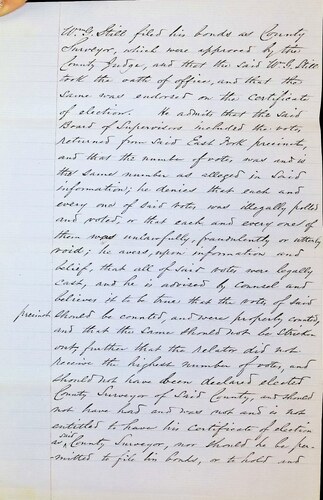 Wm G. Still filed his bonds as County
Surveyor, which were approved by the
County Judge, and that the said Wm G. Still
took the oath of office, and that the
same was endorsed on the certificate
of election. He admits that the said
Board of Supervisors included the votes
returned from said East Fork precinct,
and that the number of votes was and is
the same number as alleged in said
information; he denies that each and
every one of said votes was illegally polled
and voted, or that each and every one of
them was unlawfully, fraudulently or utterly
void; he avers, upon information and
belief, that all of said votes were legally
cast, and he is advised by counsel and
believes it to be true that the vote of said
precinct should be counted, and were properly counted,
and that the same should not be stricken
out, further that the relator did not
receive the highest number of votes, and
should not have been declared elected
County Surveyor of said County, and should
not have had and was not and is not
entitled to have his certificate of election
as said County Surveyor, nor should he be per-
mitted to file his bonds, or to hold and